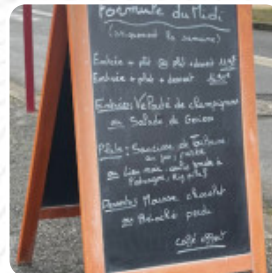 Formule du Midi
(uniquement la semaine)
Entrée + plat ou plat + dessert
Entrée + plat + dessert
Entrées: Velouté de champignons
ou Salade de Gésiers
Plats: Saucisse de Toulouse
au jus,
ou Lieu noir,
Desserts: Mousse chocolat
ou Brioche perdu
café offert